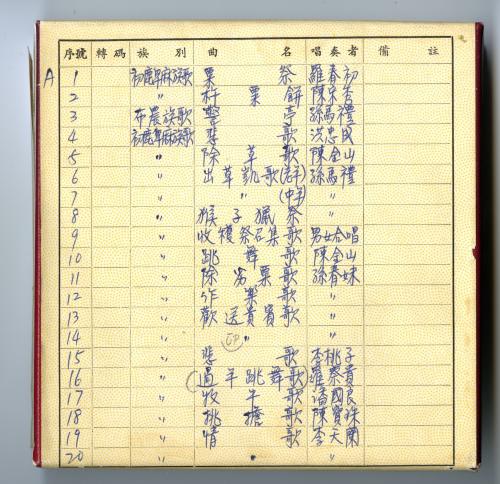 序號 轉碼 族別 曲名 唱奏者 備註
A 1 初鹿卑麻族歌 粟祭 羅春初
2 〃 杵粟餅 陳宋香
3 布農族歌 警亭 孫馬禮
4 初鹿卑麻族歌 悲歌 洪忠民
5 〃 除草歌 陳金山
6 〃 出草凱歌(群) 孫馬禮
7 〃 〃 〃
8 〃 猴子獵祭 〃
9 〃 收穫祭召集歌 男女合唱
10 〃 跳舞歌 陳金山
11 〃 除粟歌 孫春妹
12 〃 作樂歌 〃
13 〃 歡送貴賓歌 〃
14 〃 〃 〃
15 〃 悲歌 李桃子
16 〃 (過年跳舞歌) 羅蔡貴
17 〃 牧牛歌 潘國良
18 〃 挑擔歌 陳寶珠
19 〃 情歌 李天蘭
20 〃 〃 〃